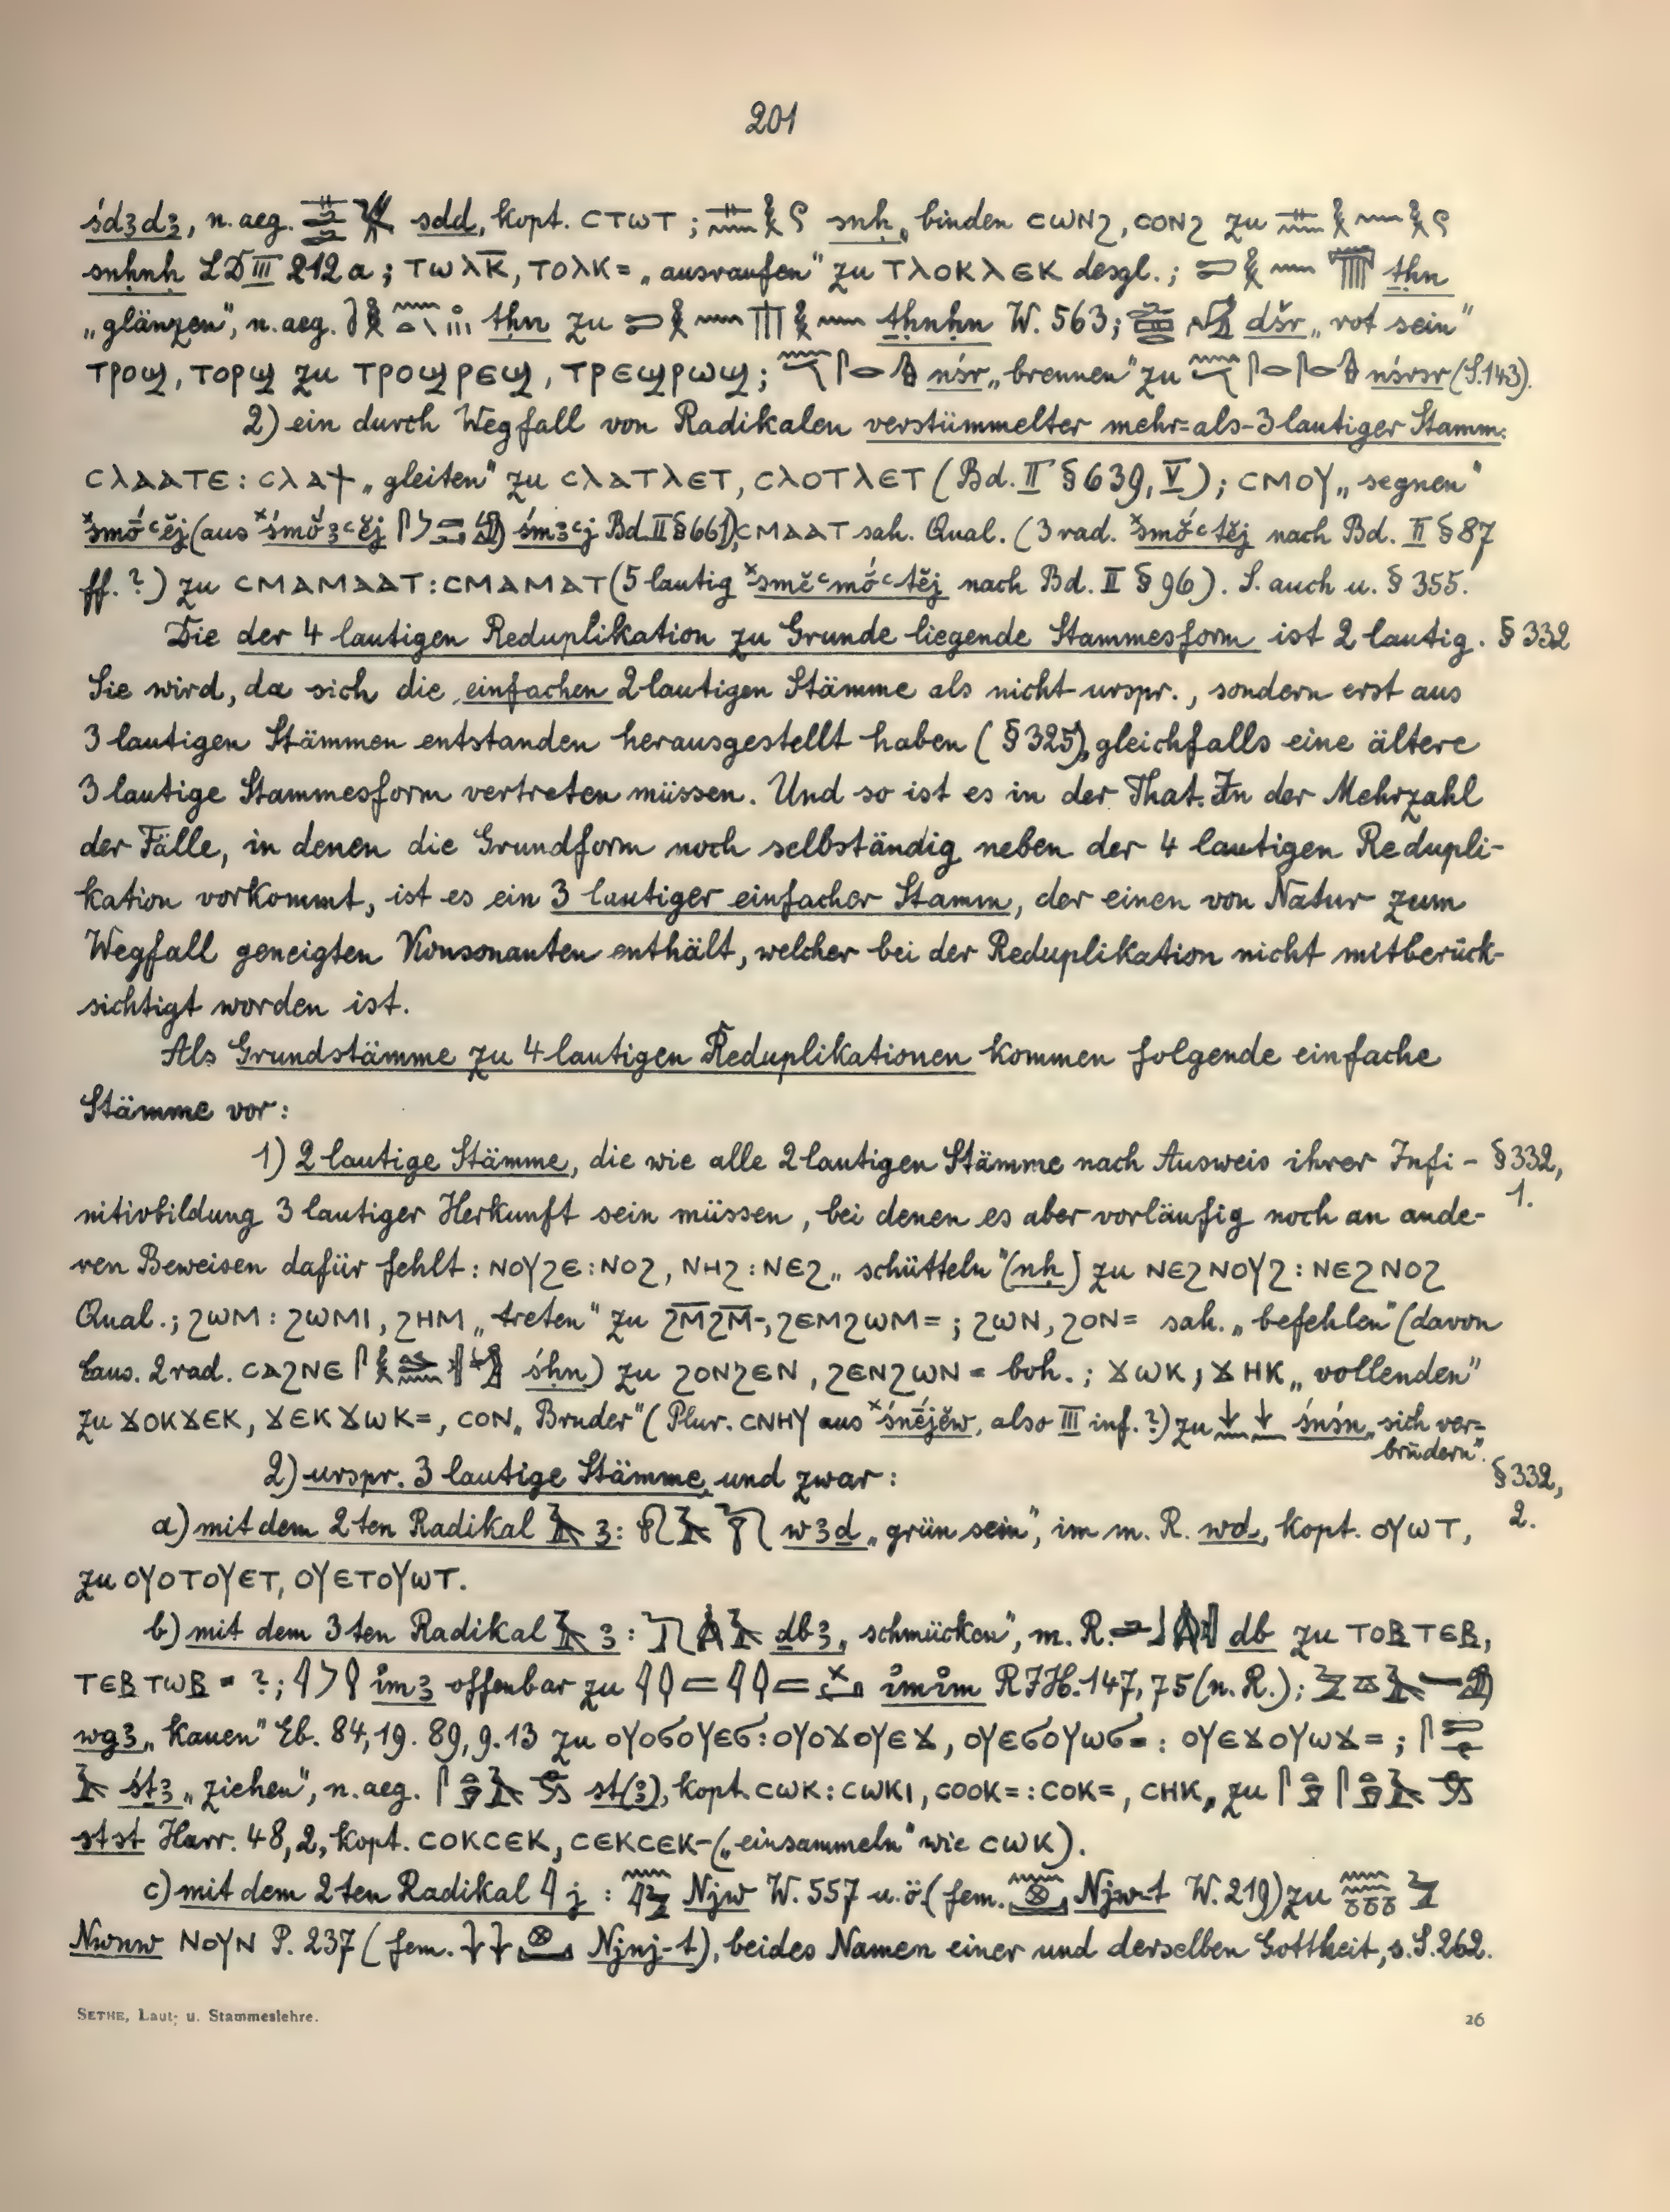 201
śdꜣdꜣ, n. aeg. sdd, kopt. ⲥⲧⲱⲧ; snḥ „binden ⲥⲱⲛϩ, ⲥⲟⲛϩ zu
snḥnḥ LD III 212 a; ⲧⲱⲗⲕ̅, ⲧⲟⲗⲕ= „ausraufen“ zu ⲧⲗⲟⲕⲗⲉⲕ desgl.; ṯḥn
„glänzen“, n. aeg. tḥn zu ṯḥnḥn W. 563; dšr „rot sein“
ⲧⲣⲟϣ, ⲧⲟⲣϣ zu ⲧⲣⲟϣⲣⲉϣ, ⲧⲣⲉϣⲣⲱϣ; nśr „brennen“ zu nśrśr (S. 143).
2) ein durch Wegfall von Radikalen verstümmelter mehr=als-3 lautiger Stamm:
ⲥⲗⲁⲁⲧⲉ : ⲥⲗⲁϯ „gleiten“ zu ⲥⲗⲁⲧⲗⲉⲧ, ⲥⲗⲟⲧⲗⲉⲧ (Bd. II § 639, V); ⲥⲙⲟⲩ „segnen“
(aus Bd. II § 661), ⲥⲙⲁⲁⲧ sah. Qual. (3 rad. nach Bd. II § 87
ff. ?) zu ⲥⲙⲁⲙⲁⲁⲧ : ⲥⲙⲁⲙⲁⲧ (5 lautig nach Bd. II § 96). S. auch u. § 355.
Die der 4 lautigen Reduplikation zu Grunde liegende Stammesform ist 2 lautig. § 332
Sie wird, da sich die einfachen 2 lautigen Stämme als nicht urspr., sondern erst aus
3 lautigen Stämmen entstanden herausgestellt haben (§ 325), gleichfalls eine ältere
3 lautige Stammesform vertreten müssen. Und so ist es in der That. In der Mehrzahl
der Fälle, in denen die Grundform noch selbständig neben der 4 lautigen Redupli-
kation vorkommt, ist es ein 3 lautiger einfacher Stamm, der einen von Natur zum
Wegfall geneigten Konsonanten enthält, welcher bei der Reduplikation nicht mitberück-
sichtigt worden ist.
Als Grundstämme zu 4 lautigen Reduplikationen kommen folgende einfache
Stämme vor:
1) 2 lautige Stämme, die wie alle 2 lautigen Stämme nach Ausweis ihrer Infi- § 332, 1.
nitivbildung 3 lautiger Herkunft sein müssen, bei denen es aber vorläufig noch an ande-
ren Beweisen dafür fehlt: ⲛⲟⲩϩⲉ : ⲛⲟϩ, ⲛⲏϩ : ⲛⲉϩ „schütteln“ (nḥ) zu ⲛⲉϩⲛⲟⲩϩ : ⲛⲉϩⲛⲟϩ
Qual.; ϩⲱⲙ : ϩⲱⲙⲓ, ϩⲏⲙ „treten“ zu ϩⲙ̅ϩⲙ̅-, ϩⲉⲙϩⲱⲙ= ; ϩⲱⲛ, ϩⲟⲛ= sah. „befehlen“ (davon
caus. 2 rad. ⲥⲁϩⲛⲉ śḥn) zu ϩⲟⲛϩⲉⲛ, ϩⲉⲛϩⲱⲛ= boh.; ϫⲱⲕ, ϫⲏⲕ „vollenden“
zu ϫⲟⲕϫⲉⲕ, ϫⲉⲕϫⲱⲕ=, ⲥⲟⲛ „Bruder“ (Plur. ⲥⲛⲏⲩ aus ˣśnējĕw, also III inf. ?) zu śnśn „sich ver=
brüdern“.
2) urspr. 3 lautige Stämme, und zwar: § 332, 2.
a) mit dem 2ten Radikal ꜣ: wꜣḏ „grün sein“, im m. R. wd, kopt. ⲟⲩⲱⲧ,
zu ⲟⲩⲟⲧⲟⲩⲉⲧ, ⲟⲩⲉⲧⲟⲩⲱⲧ.
b) mit dem 3ten Radikal ꜣ: ḏbꜣ „schmücken“, m. R. db zu ⲧⲟⲃⲧⲉⲃ,
ⲧⲉⲃⲧⲱⲃ= ?; imꜣ offenbar zu imim RIH. 147, 75 (n. R.);
wgꜣ „kauen“ Eb. 84, 19. 89, 9. 13 zu ⲟⲩⲟϭⲟⲩⲉϭ : ⲟⲩⲟϫⲟⲩⲉϫ, ⲟⲩⲉϭⲟⲩⲱϭ= : ⲟⲩⲉϫⲟⲩⲱϫ= ;
śṯꜣ „ziehen“, n. aeg. st(ꜣ), kopt. ⲥⲱⲕ : ⲥⲱⲕⲓ, ⲥⲟⲟⲕ= : ⲥⲟⲕ=, ⲥⲏⲕ, zu
stst Harr. 48, 2, kopt. ⲥⲟⲕⲥⲉⲕ, ⲥⲉⲕⲥⲉⲕ- („einsammeln“ wie ⲥⲱⲕ).
c) mit dem 2ten Radikal j : Njw W. 557 u. ö. (fem. Njw-t W. 219) zu
Nwnw ⲛⲟⲩⲛ P. 237 (fem. Njnj-t), beides Namen einer und derselben Gottheit, s. S. 262.
SETHE, Laut- u. Stammeslehre. 26